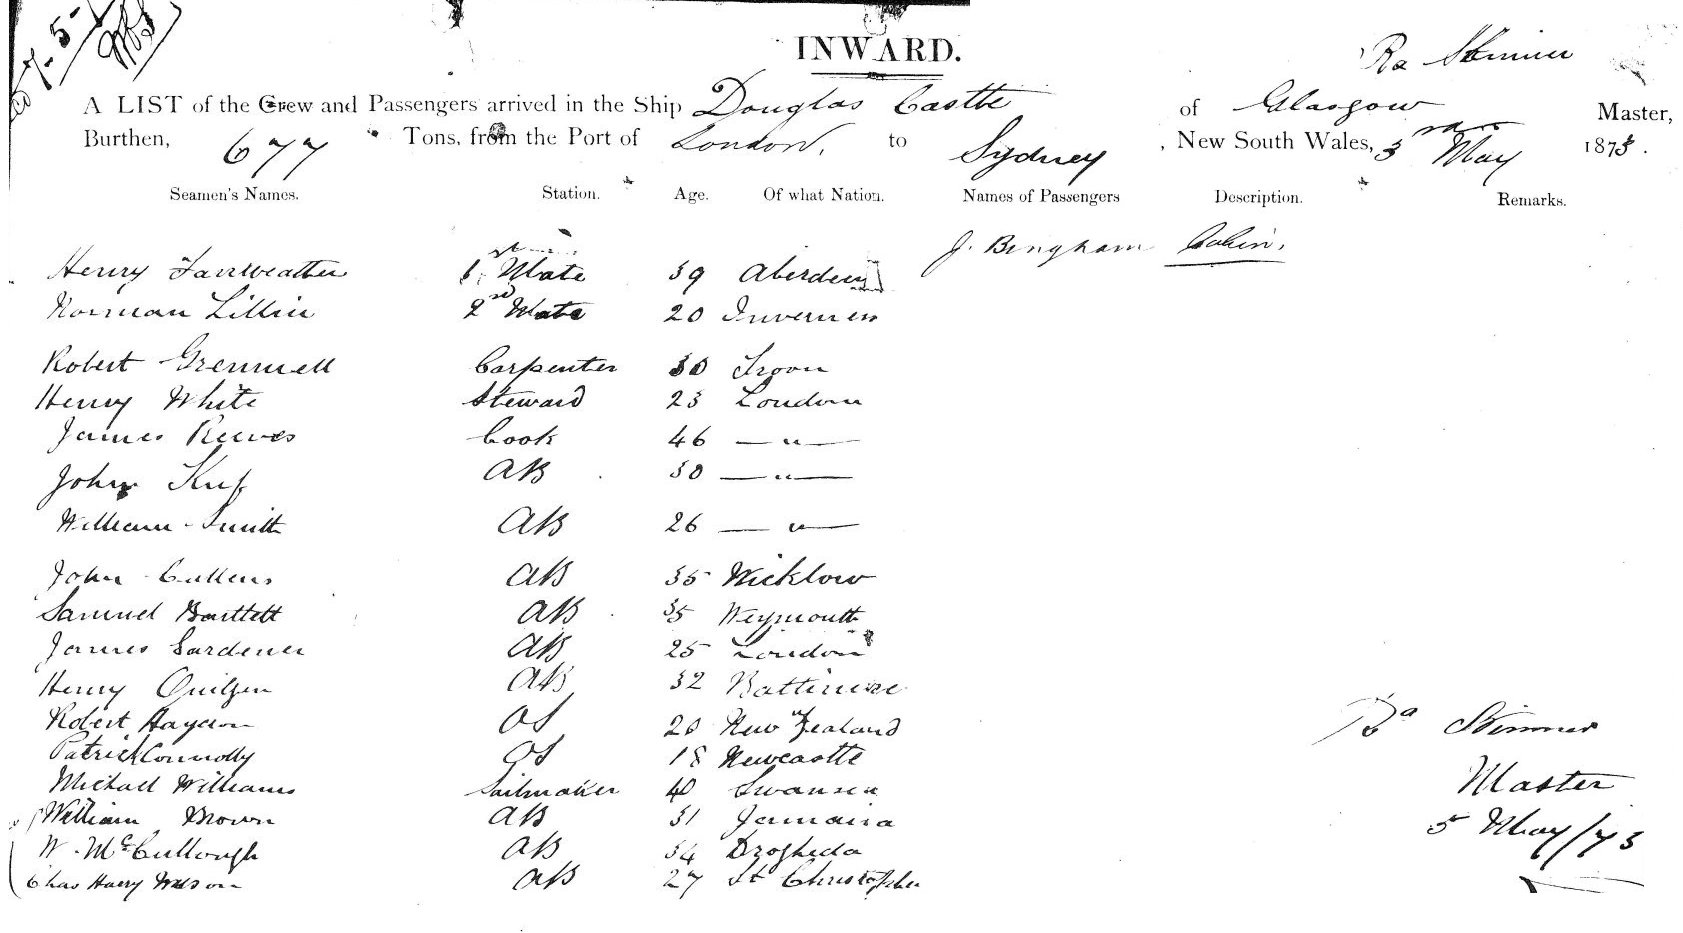 7.5.
INWARD.
Skinner
A LIST of the Crew and Passengers arrived in the Ship Douglas Castle of Glasgow Master,
Burthen, 677 Tons, from the Port of London, to Sydney, New South Wales, 3 May 1873.
Seamen's Names. Station. Age. Of what Nation. Names of Passengers Description. Remarks.
J. Bingham Cabin.
Henry Fairweather 1st Mate 39 Aberdeen
Norman Lillie 2nd Mate 20 Inverness
Robert Carpenter 30 Troon
Henry White Steward 23 London
James Reeves Cook 46 — " —
John AB 30 — " —
William Smith AB 26 — " —
John Cullens AB 35 Wicklow
Samuel Bartlett AB 35 Weymouth
James Gardener AB 25 London
Henry AB 32 Baltimore
Robert OS 20 New Zealand
Patrick Connolly OS 18 Newcastle
Michael Williams Sailmaker 40 Swansea
William Brown AB 31 Jamaica
W. McCullough AB 34 Drogheda
Chas Harry Wilson AB 27 St Christopher
Skinner
Master
5 May/73